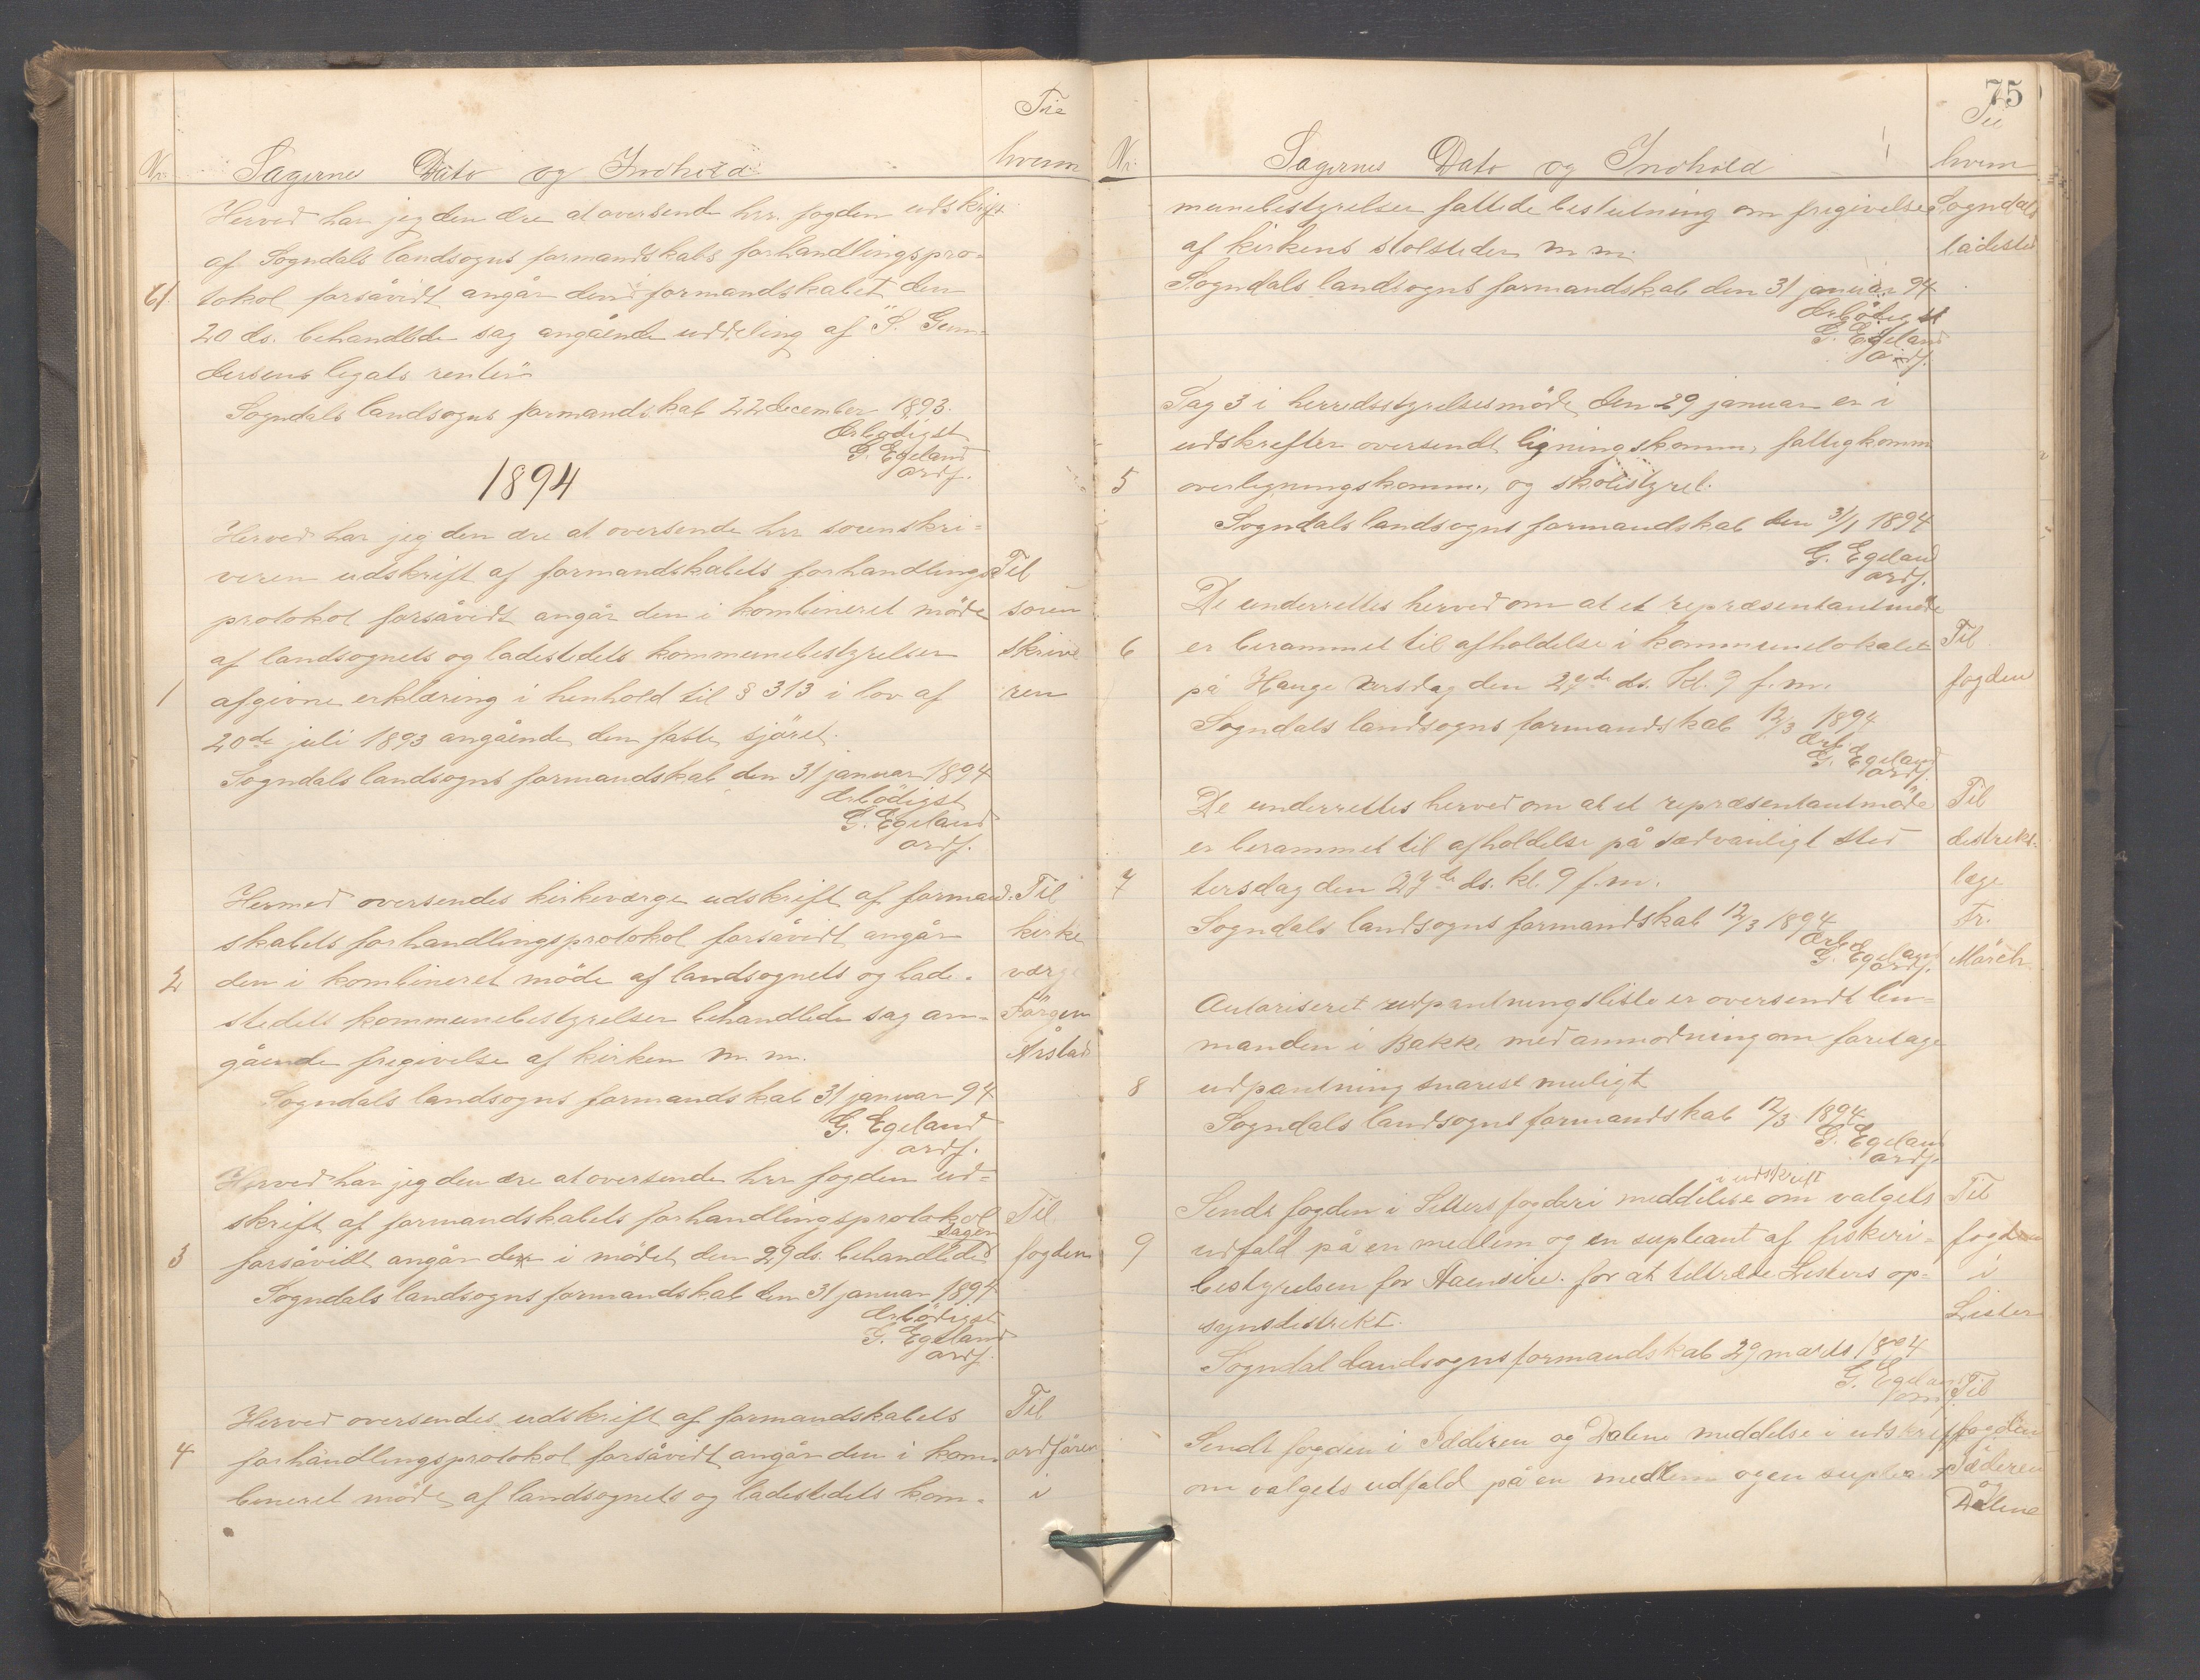 Til
Nr. Sagernes Dato og Indhold hvem
Herved har jeg den ære at oversende hrr. fogden udskrift
af Sogndals landsogns formandskabs forhandlingspro-
61. tokol forsåvidt angår den i formandskabet den
20 ds. behandlede sag angående uddeling af S. Gun-
dersens legats renter
Sogndals landsogns formandskab 22 december 1893.
Ærbødigst
G. Egeland
ordf.
1894
Herved har jeg den ære at oversende hrr sorenskri-
veren udskrift af formandskabets forhandlings- Til
protokol forsåvidt angår den i kombineret møde soren
af landsognets og ladestedets kommunebestyrelser skrive
1 afgivne erklæring i henhold til § 313 i lov af ren
20de juli 1893 angående den faste sjöret.
Sogndals landsogns formandskab den 31 januar 1894
Ærbödigst
G. Egeland
ordf.
Hermed oversendes kirkeværge udskrift af formand- Til
skabets forhandlingsprotokol forsåvidt angår kirke
2 den i kombineret møde af landsognets og lade- værge
stedets kommunebestyrelser behandlede sag an- Jörgen
gående frigivelse af kirken m. m. Årstad
Sogndals landsogns formandskab 31 januar 94
G. Egeland
ordf.
Herved har jeg den ære at oversende hrr fogden ud-
skrift af formandskabets forhandlingsprotokol Til
sager
3 forsåvidt angår de i mödet den 29 ds. behandlede fogden
Sogndals landsogns formandskab den 31 januar 1894
Ærbödigst
G. Egeland
ordf.
Herved oversendes udskrift af formandskabets Til
4 forhandlingsprotokol forsåvidt angår den i kom- ordfören
bineret møde af landsognets og ladestedets kom- i
75
Til
Nr. Sagernes Dato og Indhold hvem
munebestyrelser fattede beslutning om frigivelse Sogndals
af kirkens stolsteder m m. ladested
Sogndals landsogns formandskab den 31 januar 94
Ærbödigst
G. Egeland
ordf.
Sag 3 i herredsstyrelsesmöde den 29 januar er i
udskrifter oversendt ligningskomm, fattigkomm
5 overligningskomm., og skolestyret.
Sogndals landsogns formandskab den 31/1 1894
G. Egeland
ordf.
De underrettes herved om at et repræsentantmöde
6 er berammet til afholdelse i kommunelokalet Til
på Hauge tirsdag den 27de ds. kl. 9 f.m. fogden
Sogndals landsogns formandskab 12/3 1894
Ærb.
G. Egeland
ordf.
De underrettes herved om at et repræsentantmöde Til
er berammet til afholdelse på sædvanligt sted distrikts-
7 tirsdag den 27de ds. kl. 9 f.m. læge
Sogndals landsogns formandskab 12/3 1894 Fr.
Ærb.
G. Egeland Märch
ordf.
Autoriseret udpantningsliste er oversendt len-
manden i Bakke med anmodning om foretage
8 udpantning snarest muligt
Sogndals landsogns formandskab 12/3 1894
G. Egeland
ordf.
i udskrift
Sendt fogden i Listers fogderi meddelelse om valgets Til
9 udfald på en medlem og en supleant af fiskeri- fogden
bestyrelsen for Aaensire for at tiltræde Listers op- i
synsdistrikt. Lister
Sogndal landsogns formandskab 29 marts 1894
G. Egeland
ordf. Til
Sendt fogden i Jæderen og Dalene meddelse i udskrift fogden
om valgets udfald på en medlem og en supleant Jæderen
og
Dalene